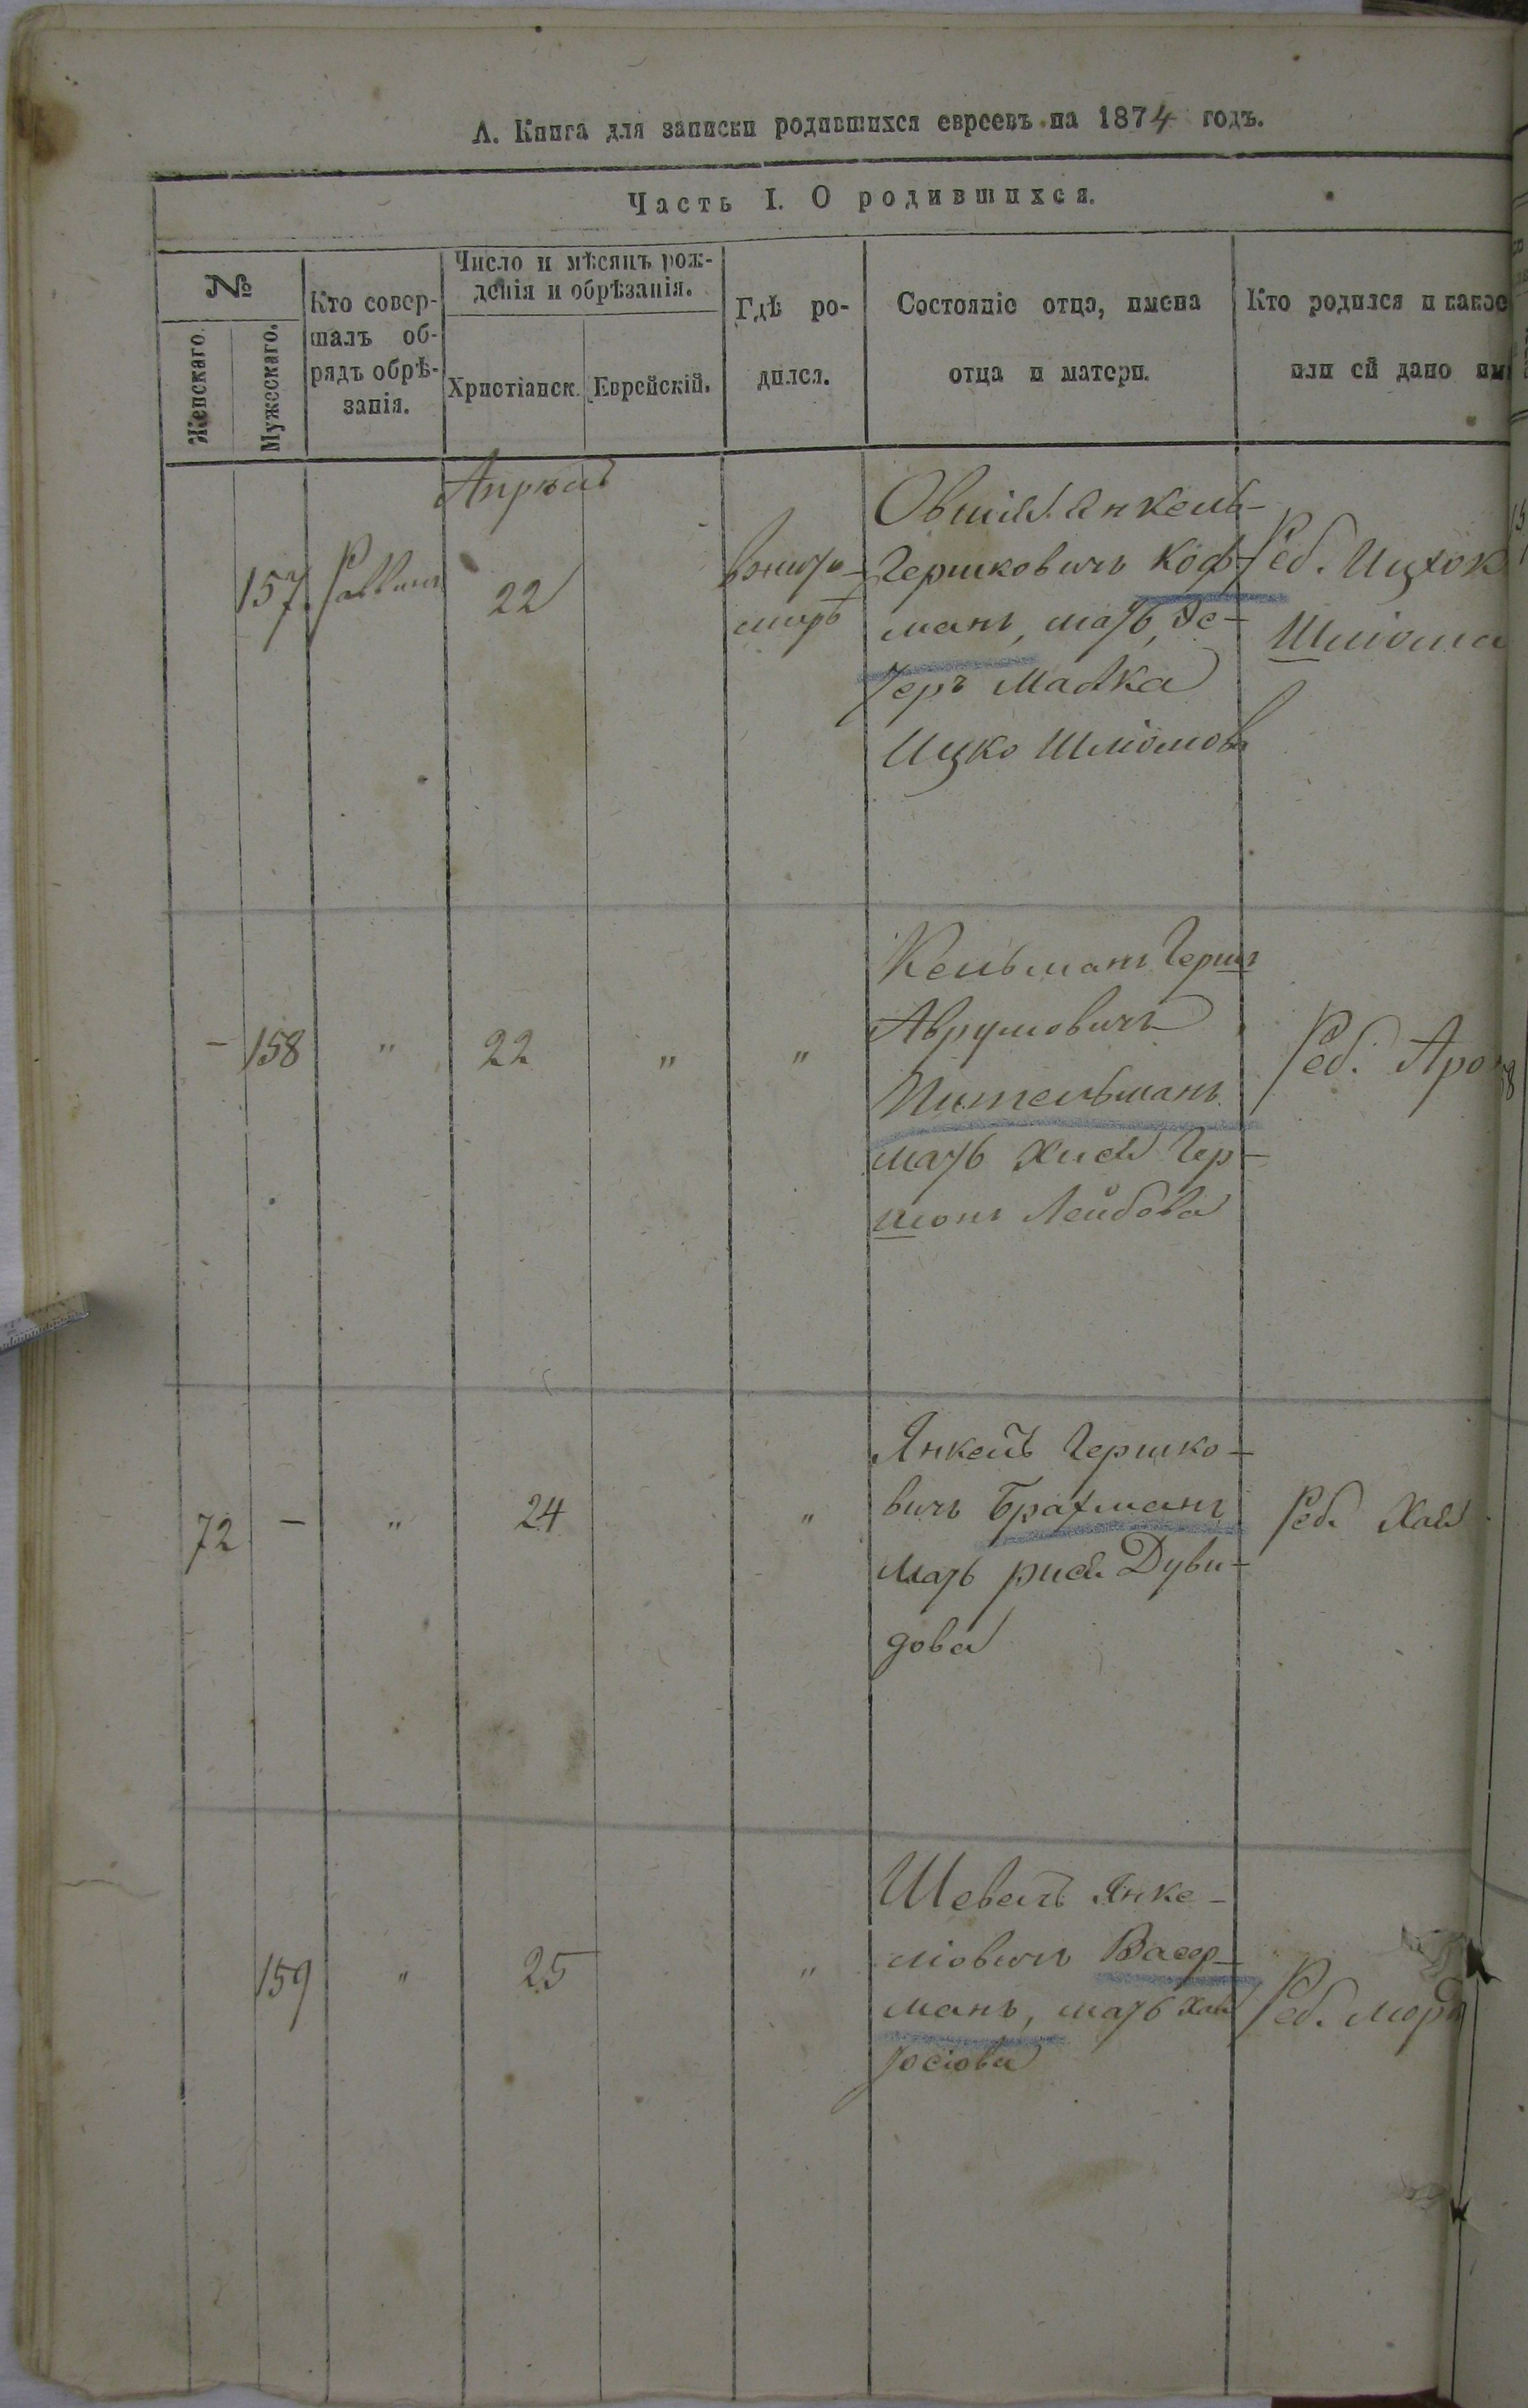 А. Книга для записки родившихся евреевъ на 1874 годъ.
Часть I. О родившихся.
№
Женскаго.
Мужескаго.
Кто совер-
шалъ об-
рядъ обрѣ-
занія.
Число и мѣсяцъ рож-
денія и обрѣзанія.
Христіанск.
Еврейскій.
Гдѣ ро-
дился.
Состояніе отца, имена
отца и матери.
Кто родился и какое
или ей дано им
Апрѣль
157
Раввинъ
22
Житo-
миръ
Овшія Янкель-
Гершковичъ Коф-
манъ, мать, Эс-
теръ Малка
Ицко Шліомова
Реб. Ицхок
Шліома
-
158
"
22
"
"
Кельманъ Гершъ
Аврумовичъ
Шительманъ
мать Хися Гер-
шонъ Лейбова
Реб. Аро
72
-
"
24
"
Янкель Гершко-
вичъ Брахманъ
мать Рися Дуви-
дова
Реб. Хая
159
"
25
"
Шевель Янке-
ліовичъ Васер-
манъ, мать Хая
Іосіова
Реб. Морд